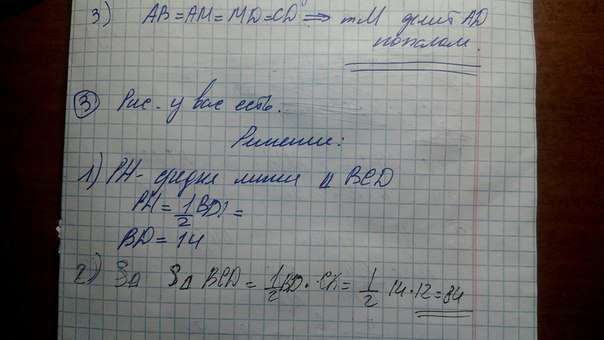 3) AB = AM = MD = CD ⇒ т.М делит AD
пополам.
③ Рис. у вас есть.
Решение:
1) PH - средняя линия Δ BCD
PH = 1/2 BD =
BD = 14
2) S Δ BCD = 1/2 BD · CK = 1/2 14 · 12 = 84